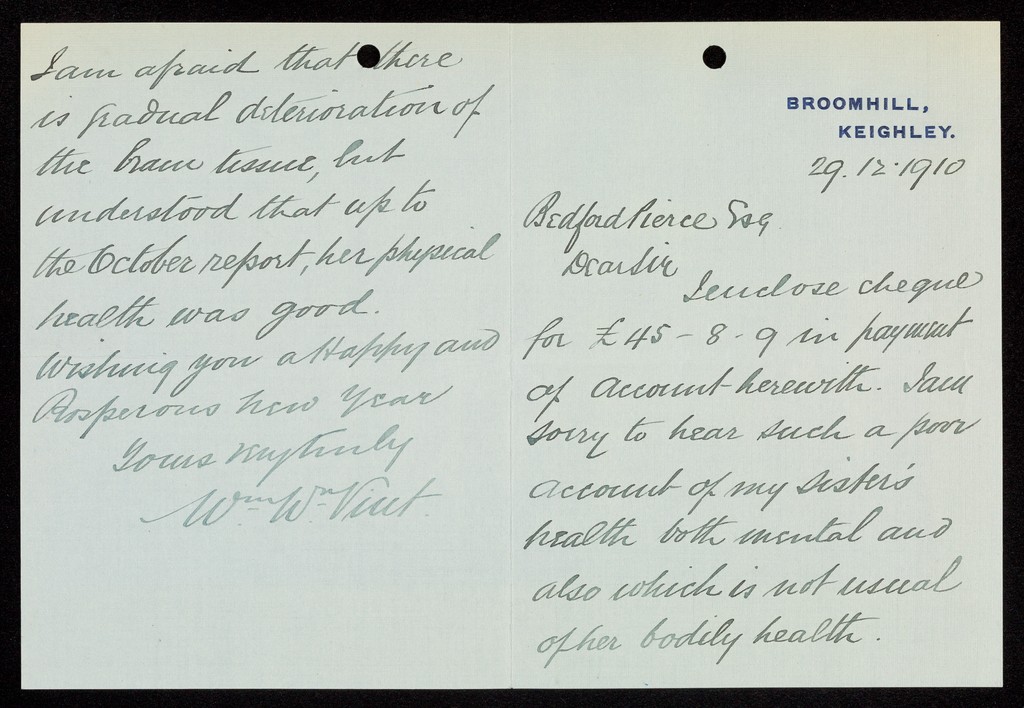 BROOMHILL,
KEIGHLEY.
29.12.1910
Bedford Pierce Esq
Dear Sir
I enclose cheque
for £45-8-9 in payment
of account herewith. I am
sorry to hear such a poor
account of my sister's
health both mental and
also which is not usual
of her bodily health.
I am afraid that there
is gradual deterioration of
the brain tissue, but
understood that up to
the October report, her physical
health was good.
Wishing you a Happy and
Prosperous New Year
Yours very truly
Wm Wn Vint.